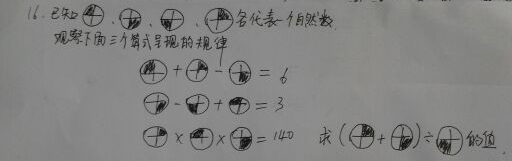 16. 已知 、 、 、 各代表一个自然数
观察下面三个算式呈现的规律
+ - = 6
- + = 3
× × = 140 求( + ) ÷ 的值.